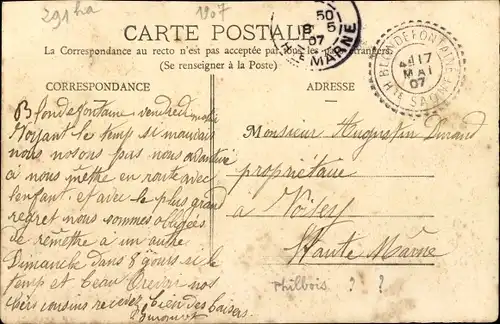 291ha
1907
CARTE POSTALE
La Correspondance au recto n'est pas acceptée par tous les pays étrangers.
(Se renseigner à la Poste)
50
8-5
07
MARNE
BLONDEFONTAINE
17
MAI
07
Hte SAÔNE
CORRESPONDANCE
Blondefontaine vendredi matin
Voyant le temp si mauvais
nous nosons pas nous avanturé
à nous mettre en route avec
l'enfant, et avec le plus grand
regret nous sommes obligées
de remettre a un autre
Dimanche dans 8 jours si le
temp et beau Recevez nos
chers cousins recevez bien des baisers
ADRESSE
Monsieur Augustin Durand
propriétaire
a Voisey
Haute Marne
Philbois ? ?